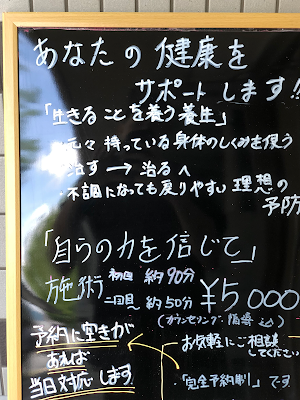 あなたの健康を
サポートします!!
「生きることを養う養生」
・元々持っている身体のしくみを使う
治す→治るへ
・不調になっても戻りやすい理想の
予防
「自らの力を信じて」
施術 初回 約90分
二回目〜 約50分 ¥5000
(カウンセリング・指導込)
予約に空きが
あれば
当日対応します
お気軽にご相談
してください
「完全予約制」です